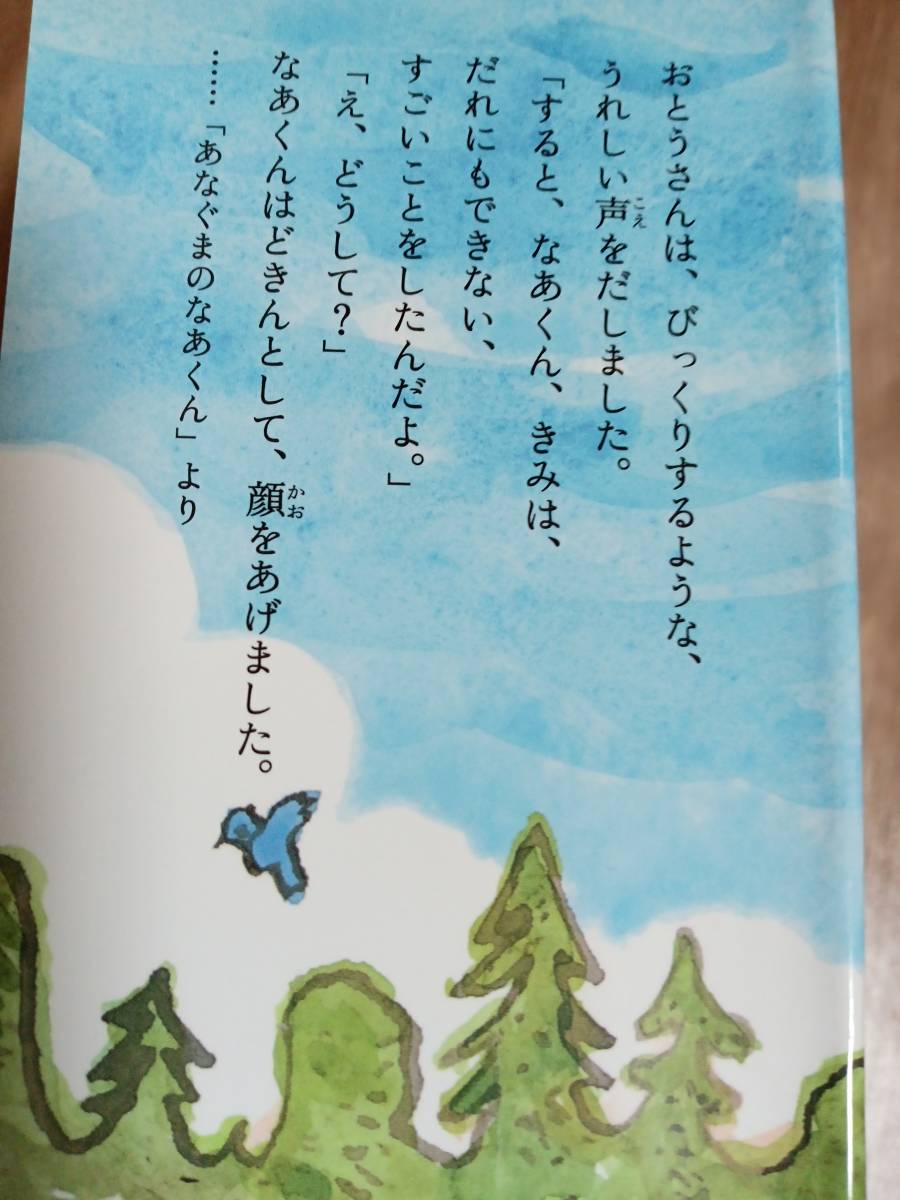 おとうさんは、びっくりするような、
うれしい声をだしました。
こえ
「すると、なあくん、きみは、
だれにもできない、
すごいことをしたんだよ。」
「え、どうして？」
なあくんはどきんとして、顔をあげました。
かお
……「あなぐまのなあくん」より